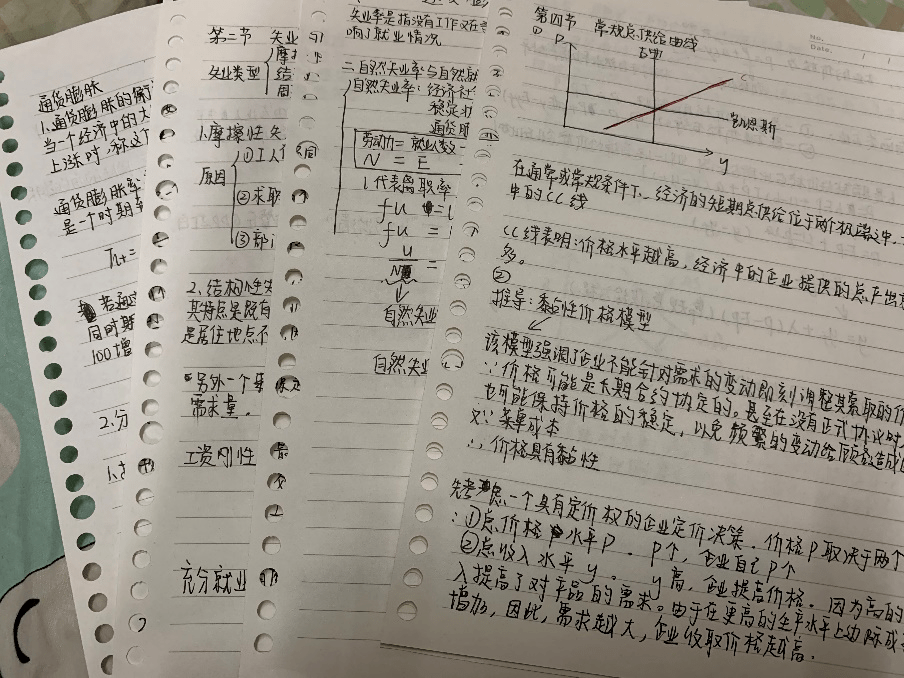 通货膨胀
1.通货膨胀的
当一个经济中的大
上涨时,称这
通货膨胀率
是一个时期
π_t =
若通
同时期
100增
2.分
第二节 失业
失业类型
摩
结
周
1.摩擦性失
原因
①工人
②求职
③部门
2.结构性失
其特点是既有
是居住地点不
另外一个
需求量。
工资刚性
充分就业
失业率是指没有工作又在
响了就业情况
二.自然失业率与自然就
自然失业率:经济社
稳定状
通货膨
劳动力=就业人数
N = E
l代表离职率
fu = l
fu =
u
N
=
自然失业
自然失业
第四节 常规总供给曲线
① P
古典
C
凯恩斯
y
在通常或常规条件下、经济的短期总供给位于两个极端之中.
中的CC线
CC线表明:价格水平越高,经济中的企业提供的总产出
多。
②
推导:黏性价格模型
该模型强调了企业不能针对需求的变动即刻调整其索取的价
∵价格可能是长期合约协定的。甚至在没有正式协议时
也可能保持价格的稳定,以免频繁的变动给顾客造成
又∵菜单成本
∴价格具有黏性
先考虑一个具有定价权的企业定价决策.价格P取决于两个
:①总价格水平P. P↑,企业自己P↑
②总收入水平y. y高,企业提高价格.因为高的
入提高了对产品的需求。由于在更高的生产水平上边际成
增加,因此,需求越大,企业收取价格越高.